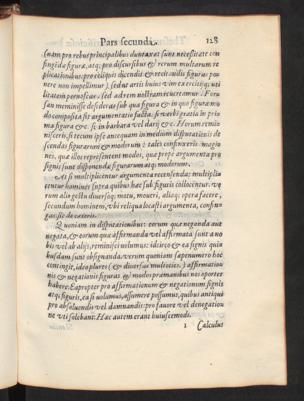 Pars secunda. 128
(nam pro rebus principalibus duntaxat sunt necessitate con
fingédæ figuræ, atq; pro discursibus & rerum multarum re
plicationibus; pro ellipsi dicendis & reticendis figuras po
nere non impetimur) sed ut artis huius vim ex exercitijs; uti
litatem penetrates, sed ad rem nostram reuertemur. Feru
san meminisse desideras sub qua figura & in quo figuræ mo
do composita sit argumentatio facta: si verbi gratia in pri
ma figura & si in barbara vel darij &c. Horum remi
niscéris, si tecum ipse antequam in medium disputationis de
scendas figurarum & modorum tales confinxeris imagi
nes, quæ illos repræsentent modos, quæ prope argumenta pro
signis sunt disponendæ figurarum atq; modorum.
At si multiplicentur argumenta recensenda: multipli
centur homines supra quibus hæc sub figuris collocentur. ve
rum alio gestu diuersoq; motu, moueri, alioq; opera facere,
secundum hominem, vbi reliqua locasti argumenta, confin
gas, sic de cæteris.
Quoniam in disputationibus: eorum quæ neganda aut
negata, & eorum quæ affirmanda vel affirmata sunt a no
bis vel ab alijs, reminisci volumus: idcirco & ea signis quibu
busdam sunt obsignanda. verum quoniam sæpenumero hoc
contingit, ideo plures & diuersas multoties affirmationi
bus & negationis figuras & modos præmanibus nos oportet
habere. Eapropter pro affirmationum & negationum signis
atq; figuris, ea si volumus, assumere possumus, quibus antiqui
pro absoluendis vel damnandis: pro fauore vel denegatio
ne vti solebant. Hæc autem erant huiuscemodi.
1 Calculus